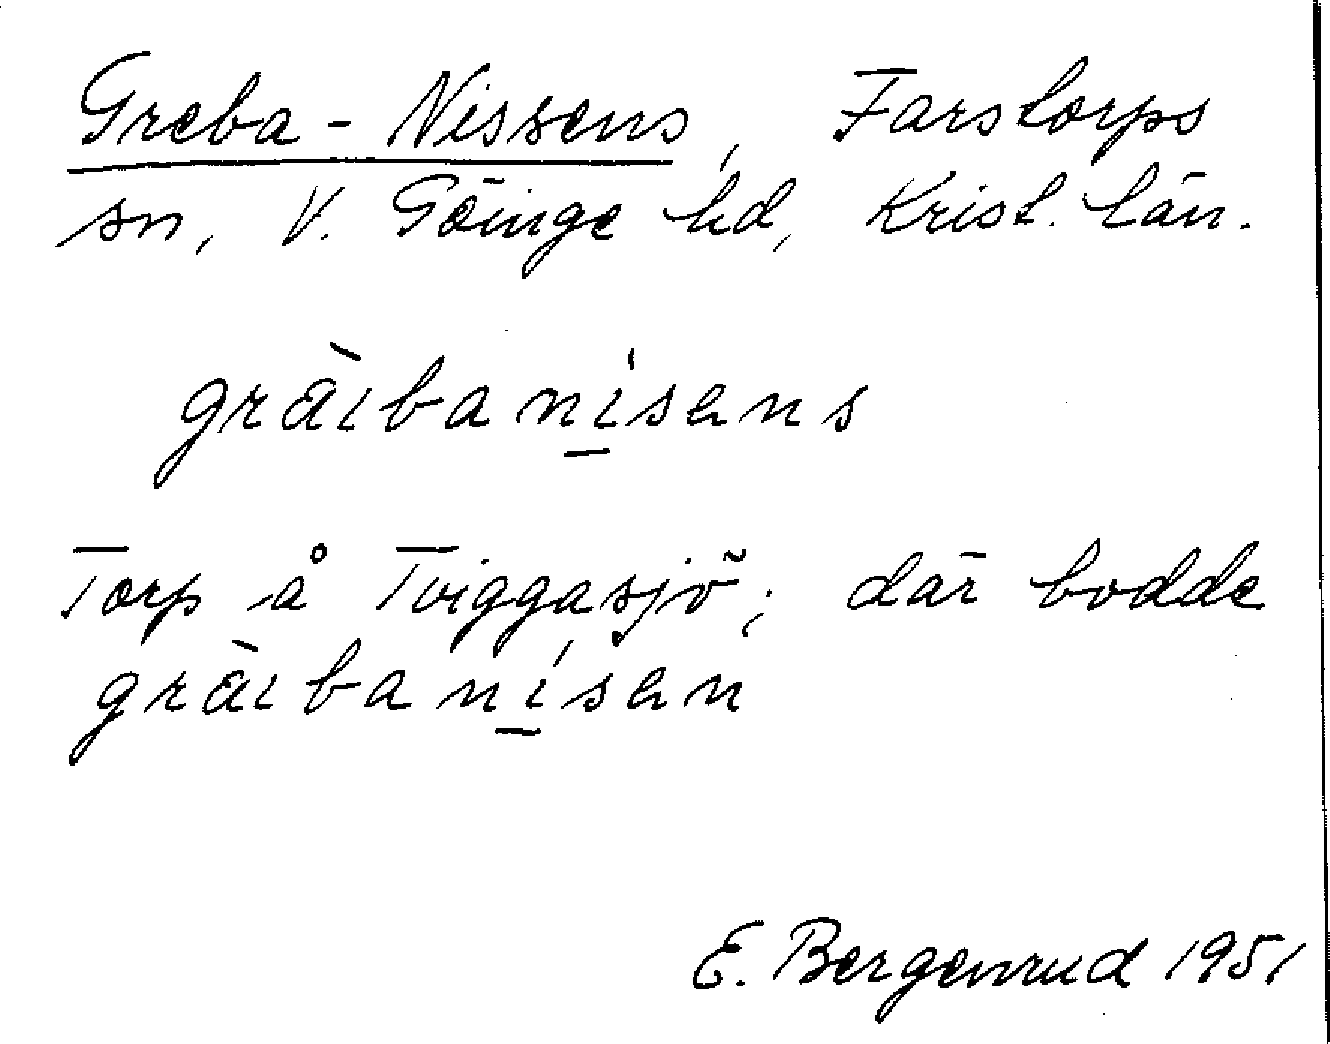 Greba-Nissens, Farstorps
sn, V. Göinge hd, Krist. län.
grä̀ıbanísens
Torp å Tviggasjö; där bodde
grä̀ıbanísen
E. Bergenrud 1951